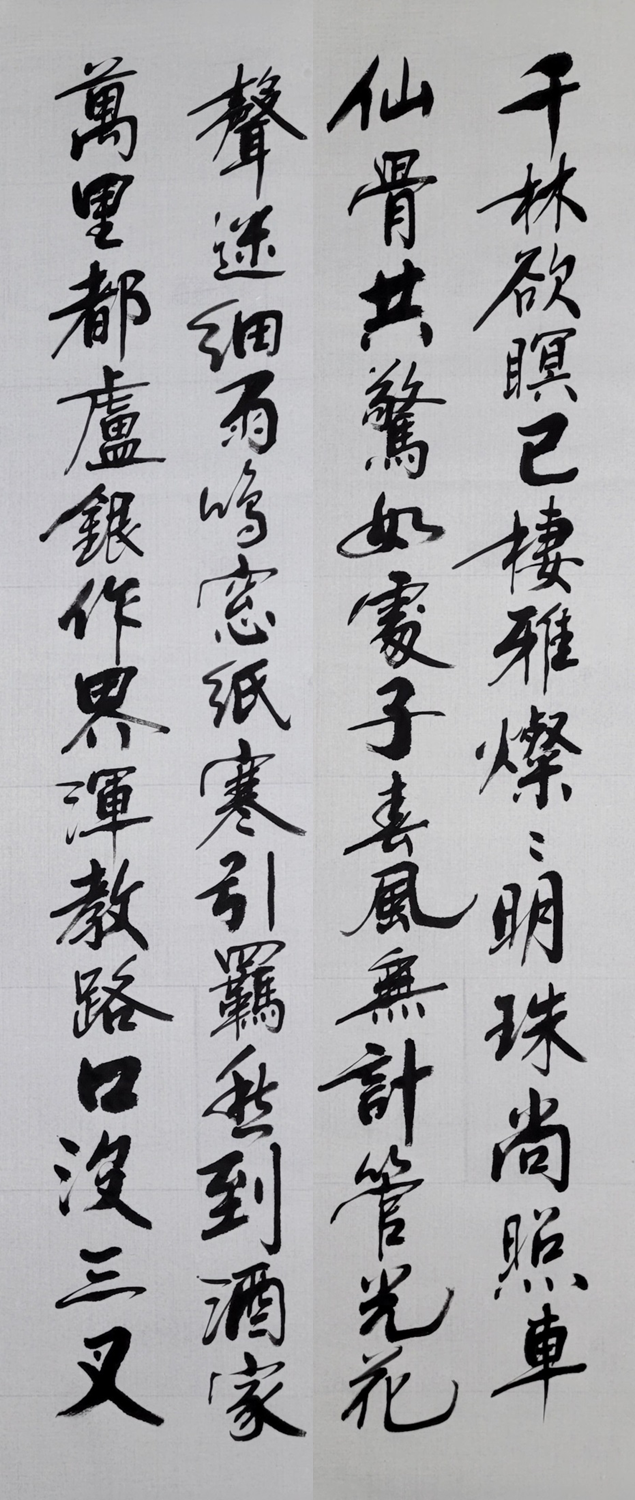 千林欲暝已棲雅燦〻明珠尚照車
仙骨共驚如處子春風無計管光花
聲迷細雨鳴窓紙寒引羈愁到酒家
萬里都盧銀作界渾教路口沒三叉